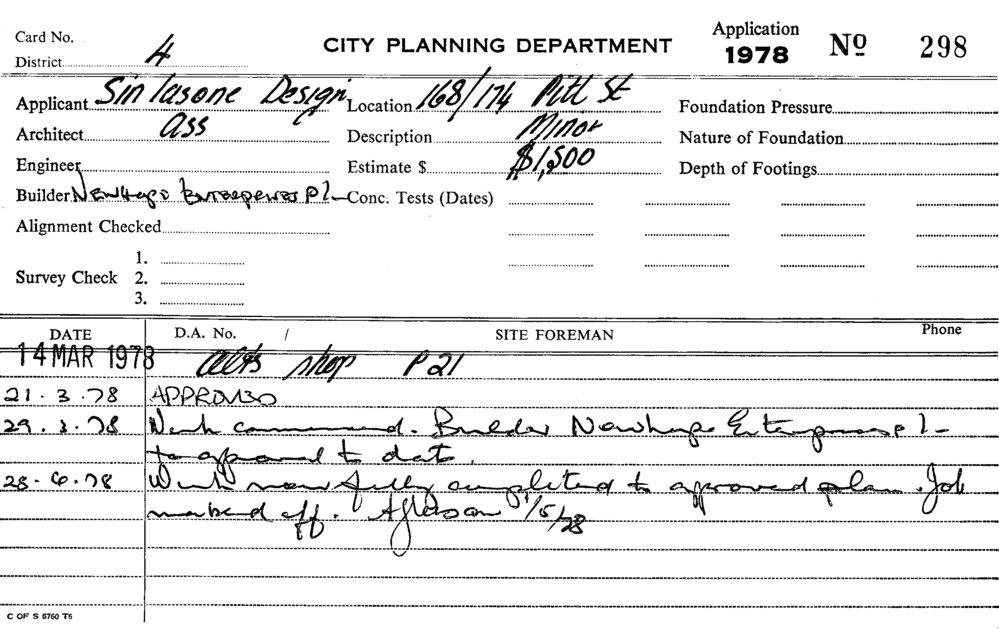 Card No.
District 4
CITY PLANNING DEPARTMENT
Application
1978 No 298
Applicant Sin Iasone Design Location 168/174 Pitt St Foundation Pressure
Architect Ass Description Minor Nature of Foundation
Engineer Estimate $ $1,500 Depth of Footings
Builder Newhope Enterprises P/- Conc. Tests (Dates)
Alignment Checked
1.
Survey Check 2.
3.
DATE D.A. No. / SITE FOREMAN Phone
14 MAR 1978 alts shop P21
21.3.78 APPROVED
29.3.78 Work commenced. Builder Newhope Enterprises P/-
to approval to date.
28.6.78 Work now fully completed to approved plan. Job
marked off. 1/5/78
C OF S 5760 T5